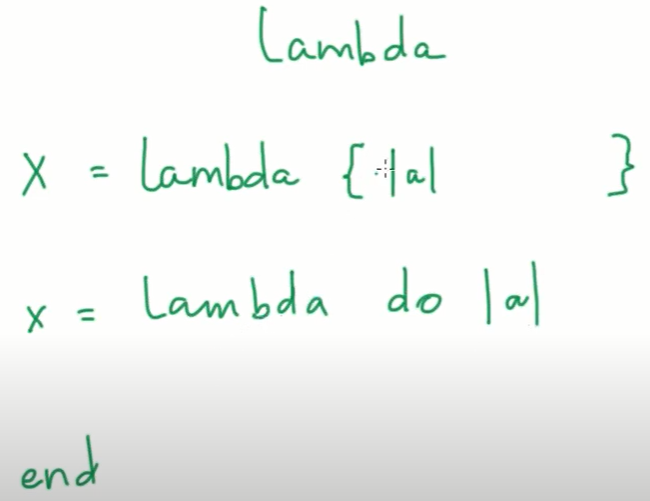 Lambda
X = Lambda { |a| }
x = Lambda do |a|
end